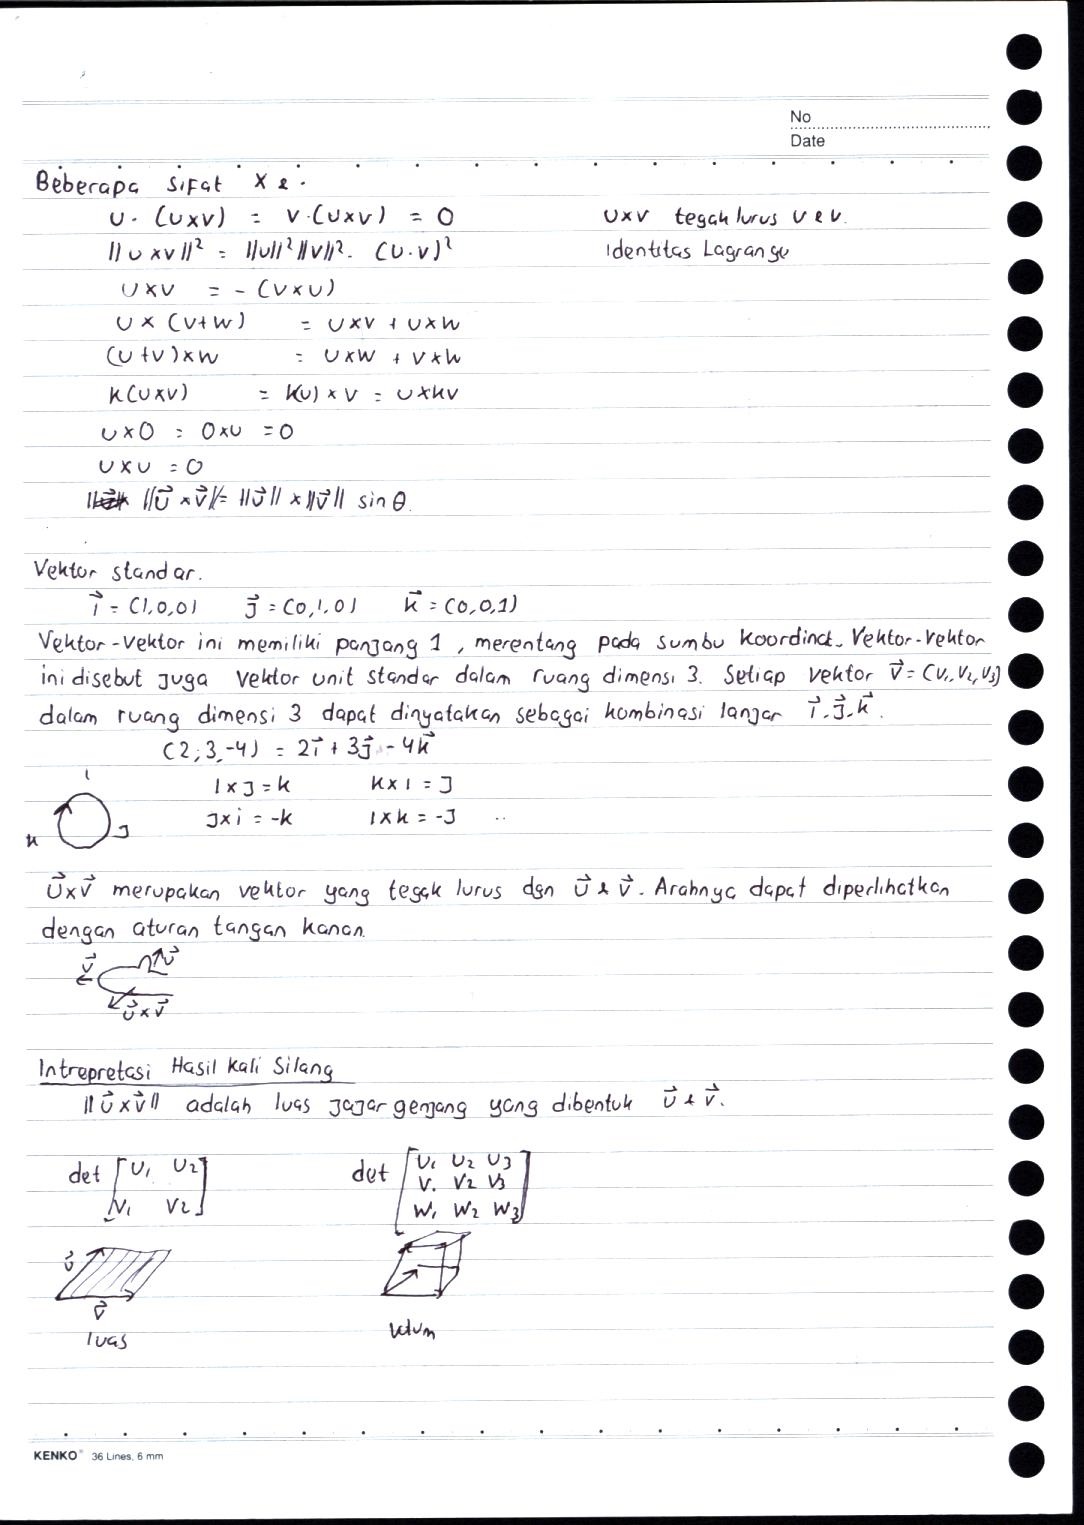 No
Date
Beberapa sifat X & ·
U · (U×V) = V · (U×V) = 0 U×V tegak lurus U & V.
||U×V||² = ||U||² ||V||² - (U·V)² Identitas Lagrange
U×V = - (V×U)
U × (V+W) = U×V + U×W
(U+V)×W = U×W + V×W
k(U×V) = k(U) × V = U×kV
U×0 = 0×U = 0
U×U = 0
||u⃗ × v⃗|| = ||u⃗|| × ||v⃗|| sin θ
Vektor standar.
i⃗ = (1,0,0) j⃗ = (0,1,0) k⃗ = (0,0,1)
Vektor-Vektor ini memiliki panjang 1, merentang pada sumbu koordinat. Vektor-Vektor
ini disebut juga vektor unit standar dalam ruang dimensi 3. Setiap vektor v⃗ = (V₁, V₂, V₃)
dalam ruang dimensi 3 dapat dinyatakan sebagai kombinasi lanjar i⃗, j⃗, k⃗.
(2,3,-4) = 2i⃗ + 3j⃗ - 4k⃗
i
i × j = k k × i = j
k j
j × i = -k i × k = -j ..
u⃗×v⃗ merupakan vektor yang tegak lurus dgn u⃗ & v⃗. Arahnya dapat diperlihatkan
dengan aturan tangan kanan.
v⃗ u⃗
u⃗×v⃗
Intrepretasi Hasil Kali Silang
||u⃗×v⃗|| adalah luas jajar genjang yang dibentuk u⃗ & v⃗.
det [U₁ U₂ det [U₁ U₂ U₃
V₁ V₂] V₁ V₂ V₃
W₁ W₂ W₃]
u⃗
v⃗
luas volum
KENKO® 36 Lines, 6 mm